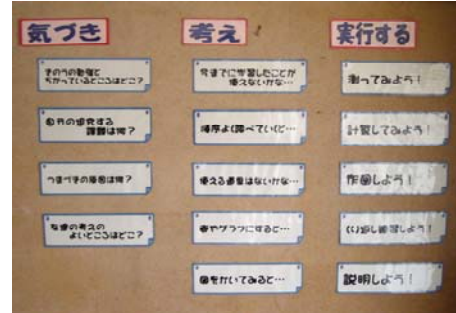 気づき
きのうの勉強と
ちがっているところはどこ?
自分の追究する
課題は何?
つまづきの原因は何?
友達の考えの
よいところはどこ?
考え
今までに学習したことが
使えないかな…
順序よく調べていくと…
使える道具はないかな…
表やグラフにすると…
図をかいてみると…
実行する
測ってみよう!
計算してみよう!
作図しよう!
くり返し練習しよう!
説明しよう!